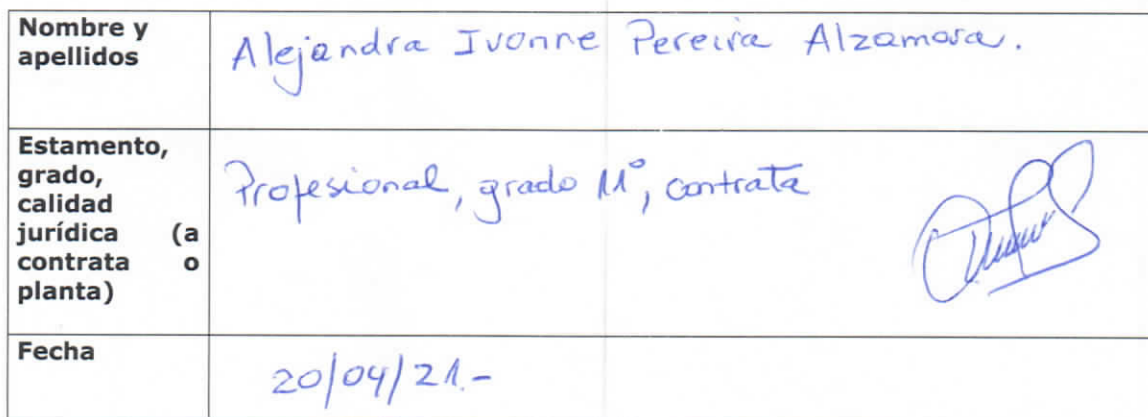 Nombre y
apellidos
Alejandra Ivonne Pereira Alzamora.
Estamento,
grado,
calidad
jurídica (a
contrata o
planta)
Profesional, grado 11°, contrata
Fecha
20/04/21.-